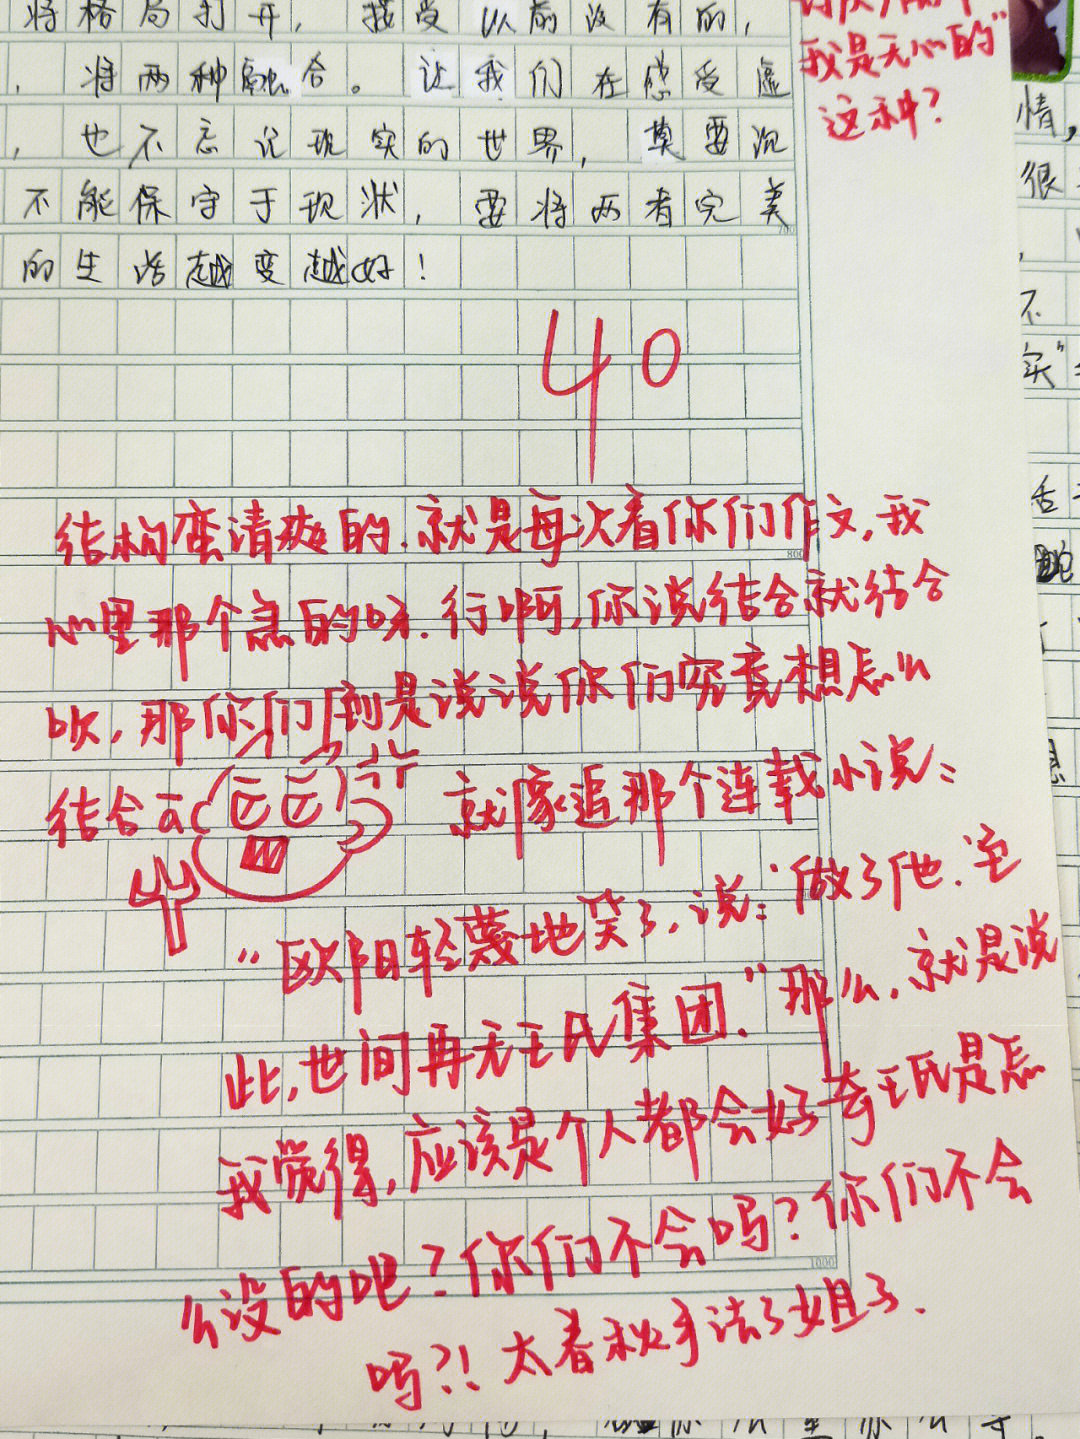 将格局打开，接受以前没有的，
，将两种融合。让我们在感受虚
，也不忘记现实的世界，莫要沉
不能保守于现状，要将两者完美
的生活越变越好！
我是无心的"
这种？
情，
很
不
实"
舌
40
结构蛮清爽的.就是每次看你们作文,我
心里那个急的呀.行啊,你说结合就结合
呗,那你们倒是说说你们究竟想怎么
结合ā
就像追那个连载小说：
"欧阳轻蔑地笑了,说：'做了他.它
此,世间再无王氏集团."那么,就是说
我觉得,应该是个人都会好奇王氏是怎
么没的吧？你们不会吗？你们不会
吗?！太春秋手法了姐子.
800
1000